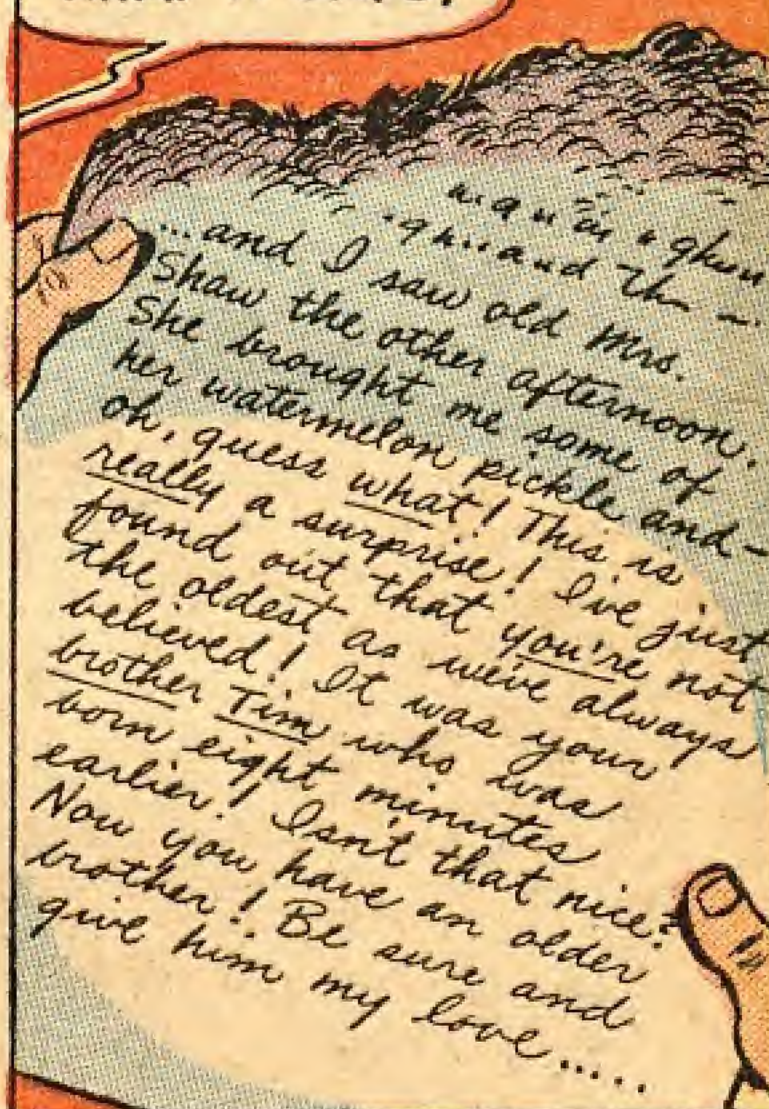 ...and I saw old Mrs.
Shaw the other afternoon.
She brought me some of
her watermelon pickle and—
oh, guess what! This is
really a surprise! I've just
found out that you're not
the oldest as we've always
believed! It was your
brother Tim who was
born eight minutes
earlier! Isn't that nice?
Now you have an older
brother! Be sure and
give him my love.....